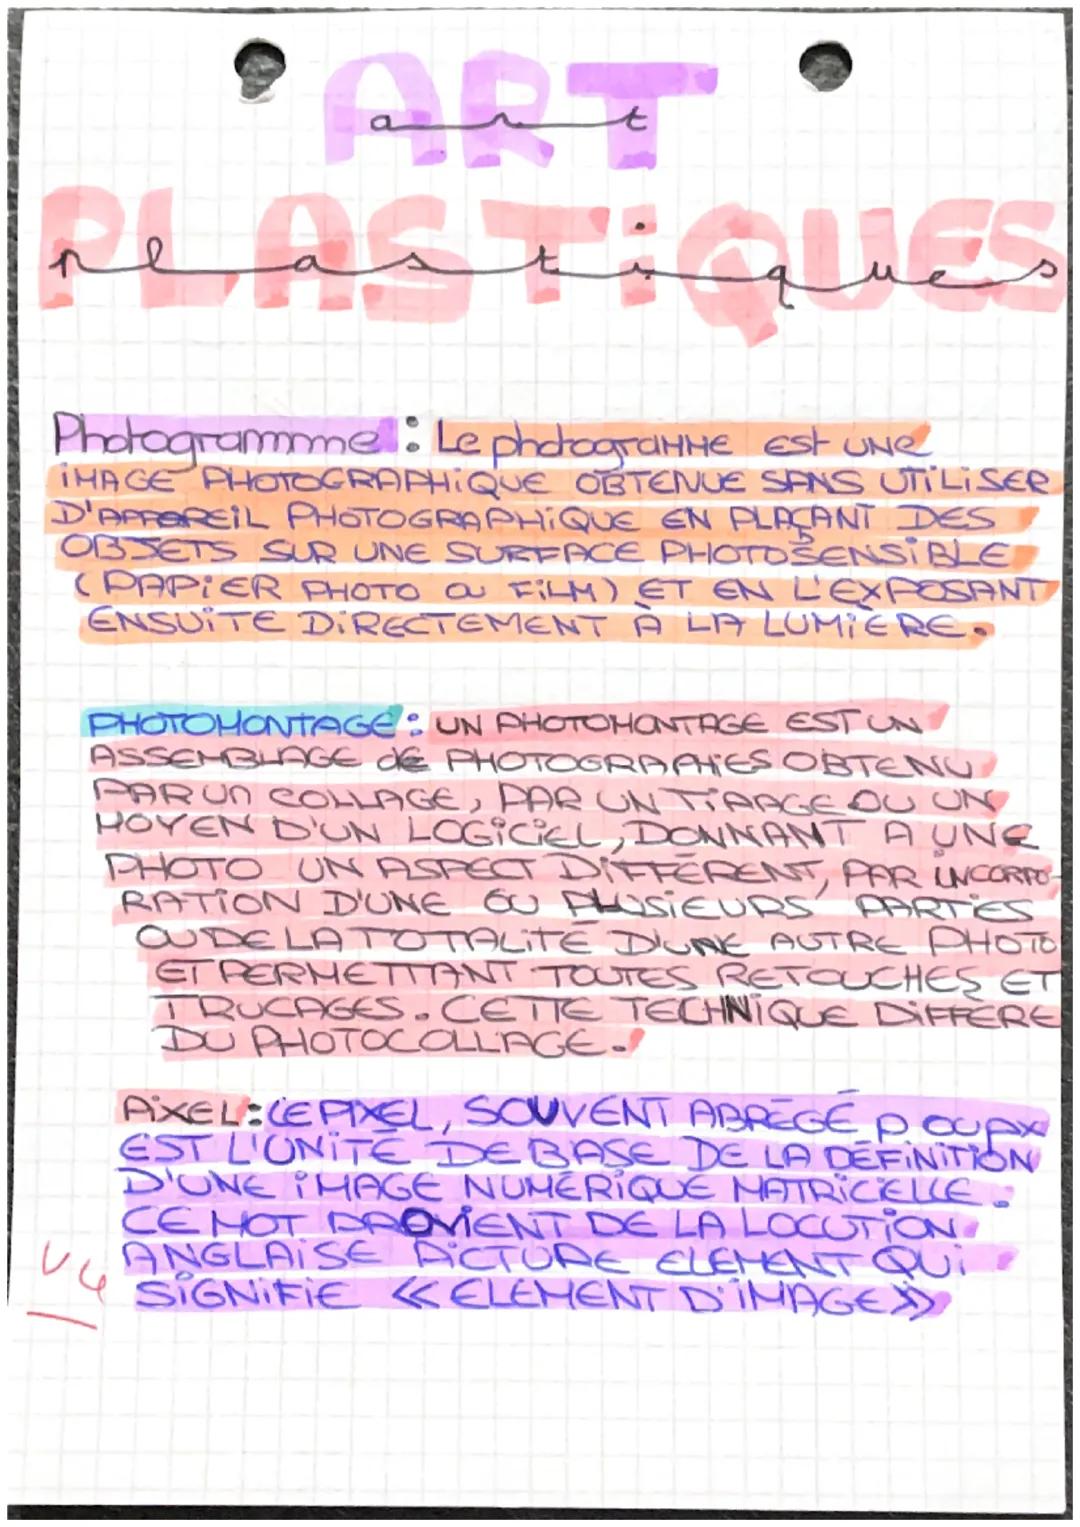 ART
art
PLASTiQUES
plastiques
Photogrammme : Le photogramme est une
iMAGE PHOTOGRAPHiQUE OBTENUE SANS UTiLiSER
D'APPAREiL PHOTOGRAPHiQUE EN PLAÇANT DES
OBJETS SUR UNE SURFACE PHOTOSENSiBLE
(PAPiER PHOTO ou FiLM) ET EN L'EXPOSANT
ENSUiTE DiRECTEMENT À LA LUMiÈRE.
PHOTOMONTAGE : UN PHOTOMONTAGE EST UN
ASSEMBLAGE de PHOTOGRAPHiES OBTENU
PAR un COLLAGE, PAR UN TiRAGE OU UN
MOYEN D'UN LOGiCiEL, DONNANT A UNE
PHOTO UN ASPECT DiFFÉRENT, PAR iNCORPO-
RATiON D'UNE OU PLUSiEURS PARTiES
OU DE LA TOTALiTÉ D'UNE AUTRE PHOTO
ET PERMETTANT TOUTES RETOUCHES ET
TRUCAGES. CETTE TECHNiQUE DiFFÈRE
DU PHOTOCOLLAGE.
PiXEL : LE PIXEL, SOUVENT ABRÉGÉ p OU px
EST L'UNiTÉ DE BASE DE LA DÉFiNiTiON
D'UNE iMAGE NUMÉRiQUE MATRiCiELLE.
CE MOT PROVIENT DE LA LOCUTiON
ANGLAiSE PiCTURE ELEMENT QUi
SiGNiFiE « ELEMENT D'iMAGE »